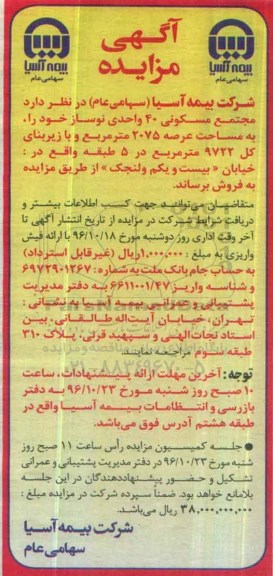 بیمه آسیا
سهامی عام
آگهی
مزایده
بیمه آسیا
سهامی عام
شرکت بیمه آسیا (سهامی عام) در نظر دارد
مجتمع مسکونی ۴۰ واحدی نوساز خود را،
به مساحت عرصه ۲۰۷۵ مترمربع و با زیربنای
کل ۹۷۲۲ مترمربع در ۵ طبقه واقع در:
خیابان «بیست و یکم ولنجک» از طریق مزایده
به فروش برساند.
متقاضیان می‌توانند جهت کسب اطلاعات بیشتر و
دریافت شرایط شرکت در مزایده از تاریخ انتشار آگهی تا
آخر وقت اداری روز دوشنبه مورخ ۹۶/۱۰/۱۸ با ارائه فیش
واریزی به مبلغ: ۱.۰۰۰.۰۰۰ ریال (غیرقابل استرداد)
به حساب جام بانک ملت به شماره: ۶۹۷۲۹۰۱۲۶۷
و شناسه واریز ۶۶۱۱۰۰۱/۴۷ به دفتر مدیریت
پشتیبانی و عمرانی بیمه آسیا به نشانی:
تهران، خیابان آیت‌اله طالقانی، بین
استاد نجات الهی و سپهبد قرنی، پلاک ۳۱۰
طبقه سوم مراجعه نمایند.
توجه: آخرین مهلت ارائه پیشنهادات، ساعت
۱۰ صبح روز شنبه مورخ ۹۶/۱۰/۲۳ به دفتر
بازرسی و انتظامات بیمه آسیا واقع در
طبقه هشتم آدرس فوق می‌باشد.
● جلسه کمیسیون مزایده رأس ساعت ۱۱ صبح روز
شنبه مورخ ۹۶/۱۰/۲۳ در دفتر مدیریت پشتیبانی و عمرانی
تشکیل و حضور پیشنهاددهندگان در این جلسه
بلامانع خواهد بود. ضمناً سپرده شرکت در مزایده مبلغ:
۳۸,۰۰۰,۰۰۰,۰۰۰ ریال می‌باشد.
شرکت بیمه آسیا
سهامی عام